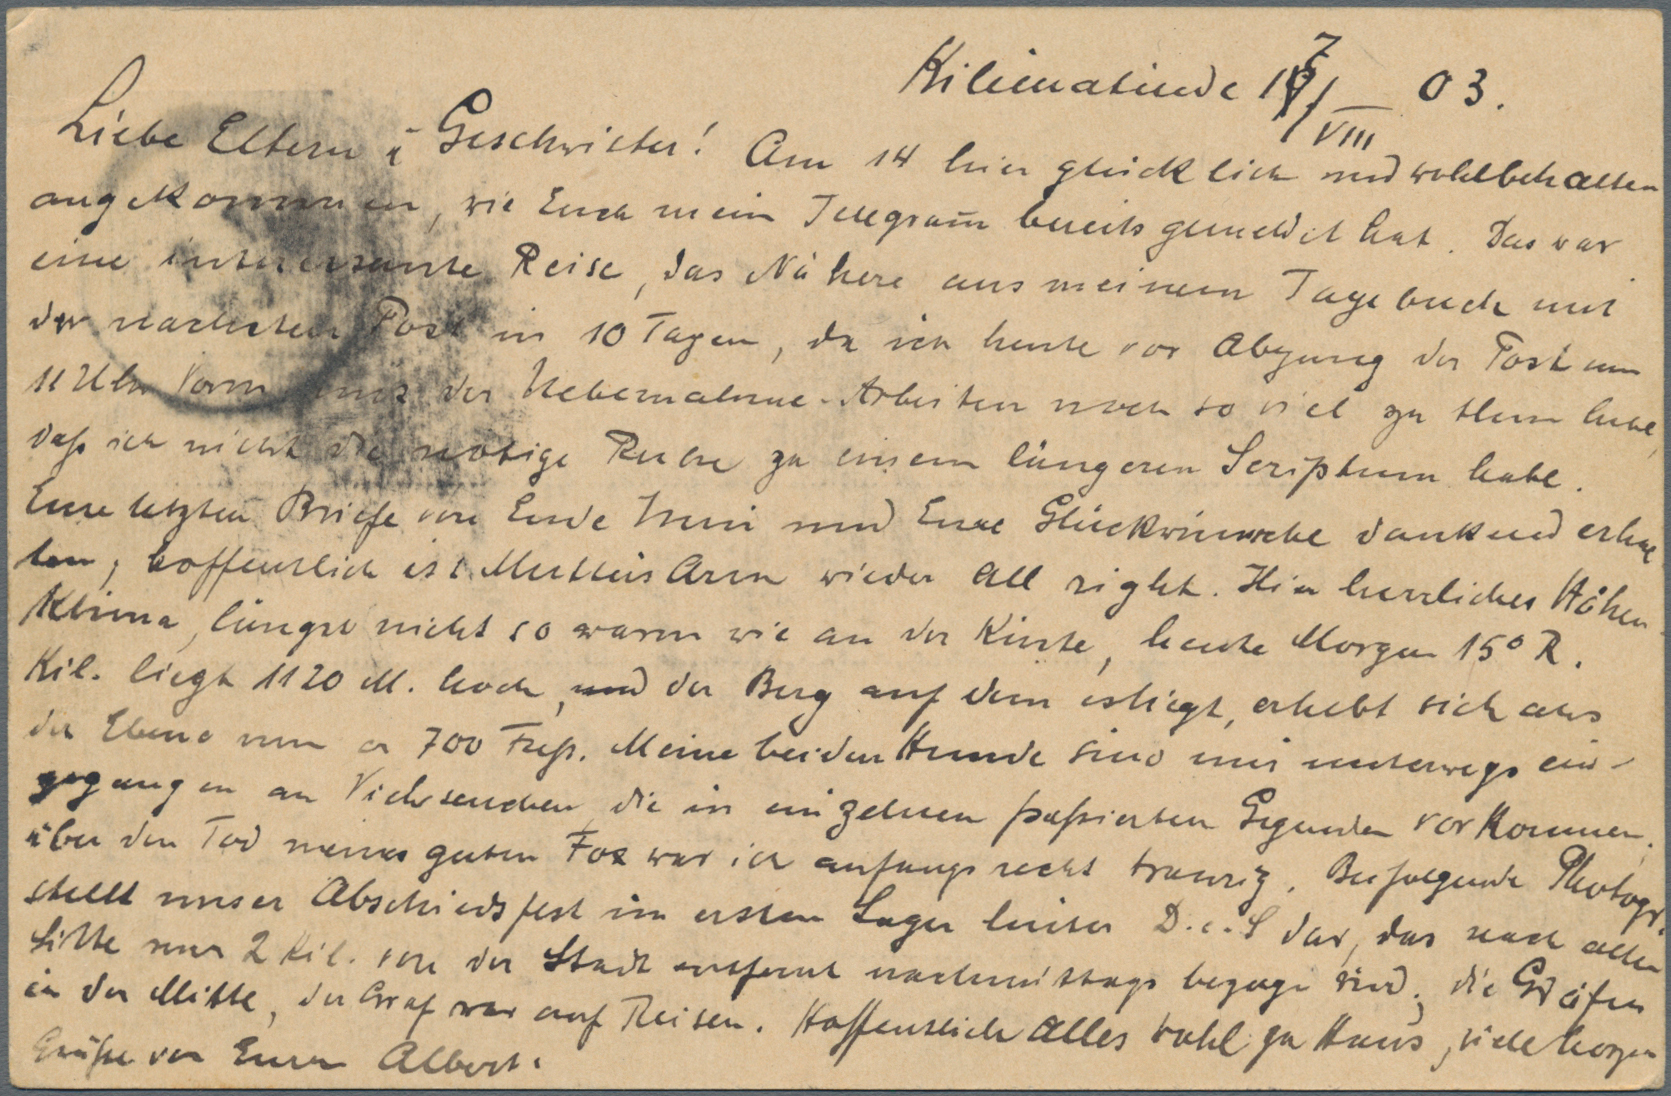 Kilimatinde 17/VIII 03.
Liebe Eltern u Geschwister! Am 14 hier glücklich und wohlbehalten
angekommen, wie Euch mein Telegram bereits gemeldet hat. Das war
eine interessante Reise, das Nähere aus meinem Tagebuch mit
der nächsten Post in 10 Tagen, da ich heute vor Abgang der Post um
11 Uhr Vorm der Uebernahme-Arbeiten noch so viel zu thun habe,
daß ich nicht die nötige Ruhe zu einem längeren Scriptum habe.
Eure letzten Briefe von Ende Juni und Eure Glückwünsche dankend erhal
ten, hoffentlich ist Mutters Arm wieder all right. Hier herrliches Höhen-
Klima, längst nicht so warm wie an der Küste, heute Morgen 15° R.
Kil. liegt 1120 M. hoch, und der Berg auf dem es liegt, erhebt sich aus
der Ebene um ca 700 Fuß. Meine beiden Hunde sind mir unterwegs ein-
gegangen an Viehseuchen, die in einzelnen paßierten Gegenden vorkommen,
über den Tod meines guten Fox war ich anfangs recht traurig. Beifolgende Photogr.
stellt unser Abschiedsfest im ersten Lager hinter D.e.S dar, das nach alter
Sitte nur 2 Kil. von der Stadt entfernt nachmittags bezogen wird, die Gräfin
in der Mitte, der Graf war auf Reisen. Hoffentlich alles wohl zu Haus, viele herzl
Grüße von Eurem Albert.